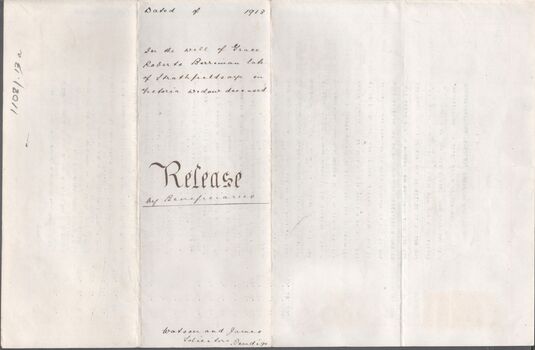 Dated of 1918
In the will of Grace
Roberts Berriman late
of Strathfieldsaye in
Victoria widow deceased
Release
by Beneficiaries
Watson and James
Solicitors
Bendigo